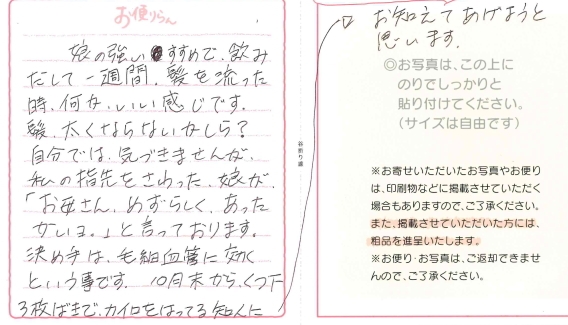 お便りらん
娘の強いすすめで、飲み
だして一週間、髪を洗った
時、何か、いい感じです。
髪、太くならないかしら？
自分では、気づきませんが、
私の指先をさわった、娘が、
「お母さん、めずらしく、あった
かいヨ。」と言っております。
決め手は、毛細血管に効く
という事です。10月末から、くつ下
3枚ばきで、カイロをはってる知人に
お知えてあげようと
思います。
谷折り線
◎お写真は、この上に
のりでしっかりと
貼り付けてください。
（サイズは自由です）
※お寄せいただいたお写真やお便り
は、印刷物などに掲載させていただく
場合もありますので、ご了承ください。
また、掲載させていただいた方には、
粗品を進呈いたします。
※お便り・お写真は、ご返却できませ
んので、ご了承ください。